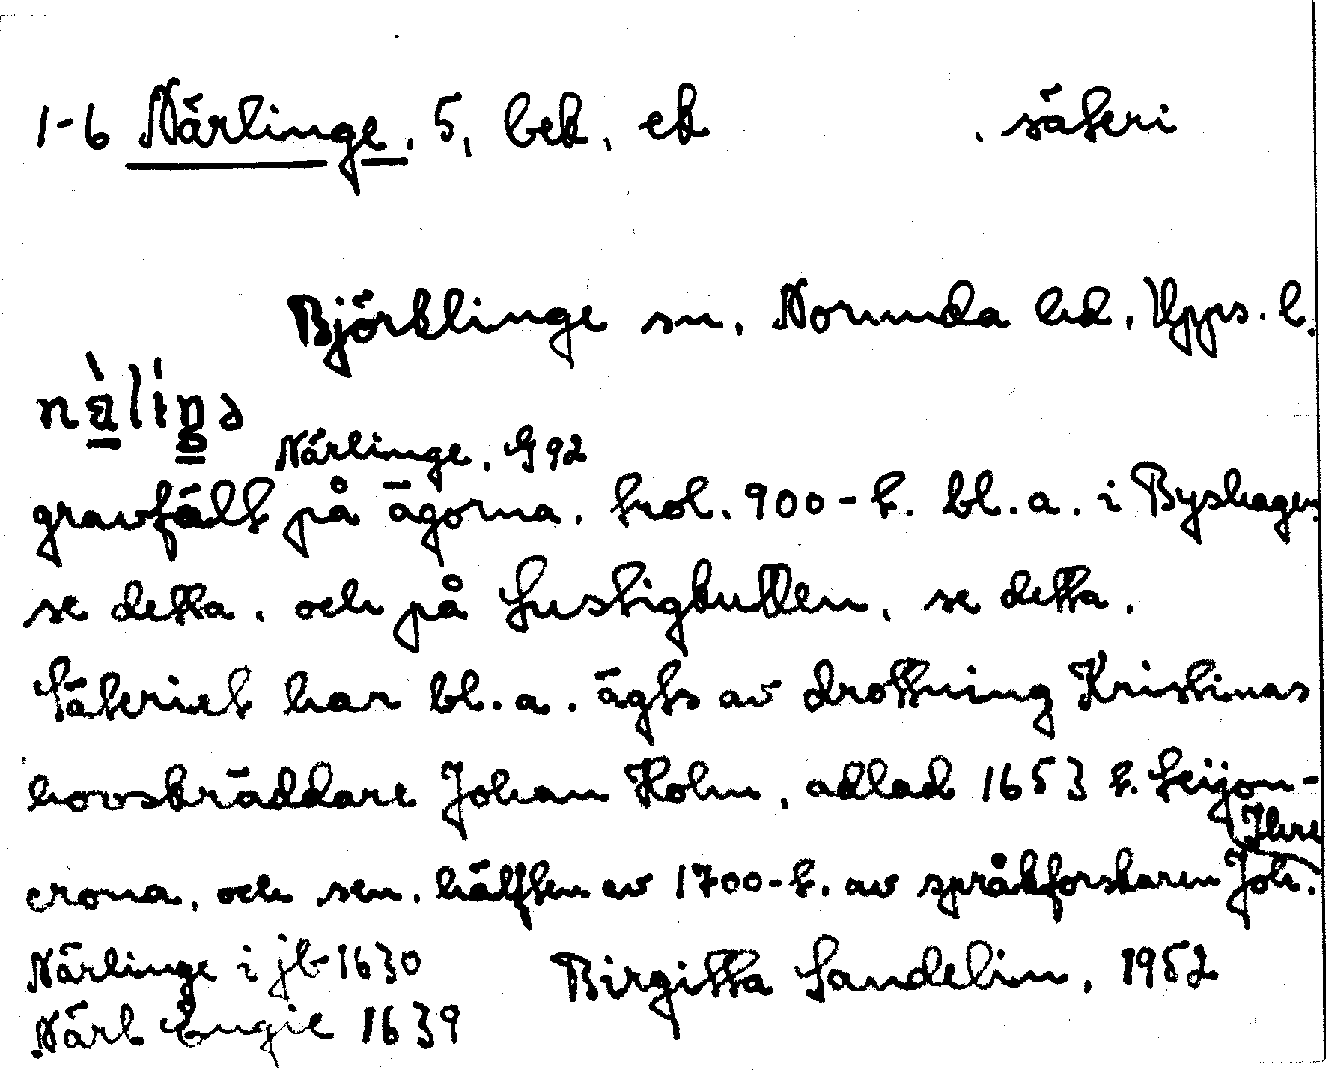 1-6 Närlinge, 5, bek, ek , säteri
Björklinge sn, Norunda hd, Upps. l.
nàliŋə
Närlinge, G 92
gravfält på ägorna, trol. 900-t. bl.a. i Byshagen
se detta, och på Lustigkullen, se detta.
Säteriet har bl.a. ägts av drottning Kristinas
hovskräddare Johan Holm, adlad 1653 t. Leijon-
crona, och sen. hälften av 1700-t. av språkforskaren Joh. Ihre
Närlinge i jb 1630
Närl Engie 1639
Birgitta Sandelin, 1952